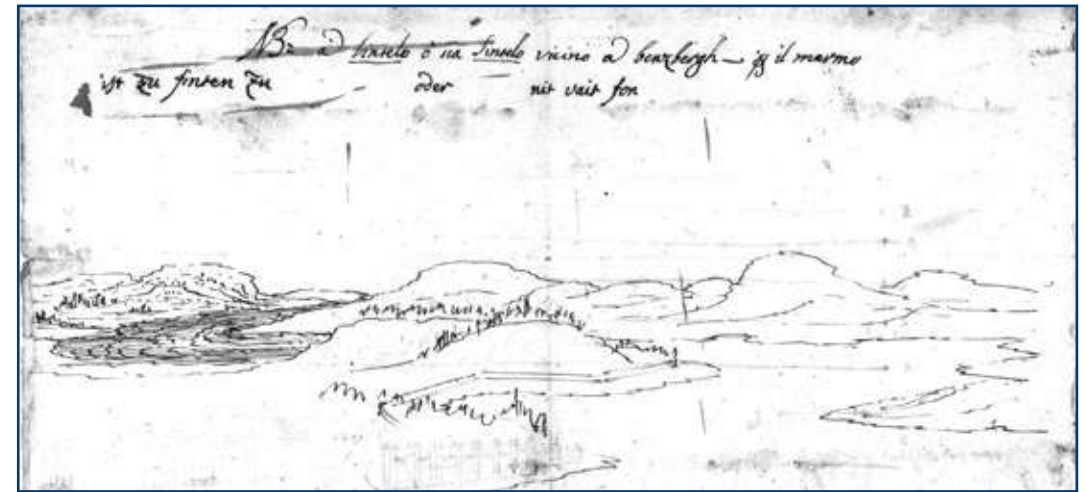 NB: à lintelo ò sia sintelo vicino à benzbergh il marmo
ist zu finten zu oder nit vait fon